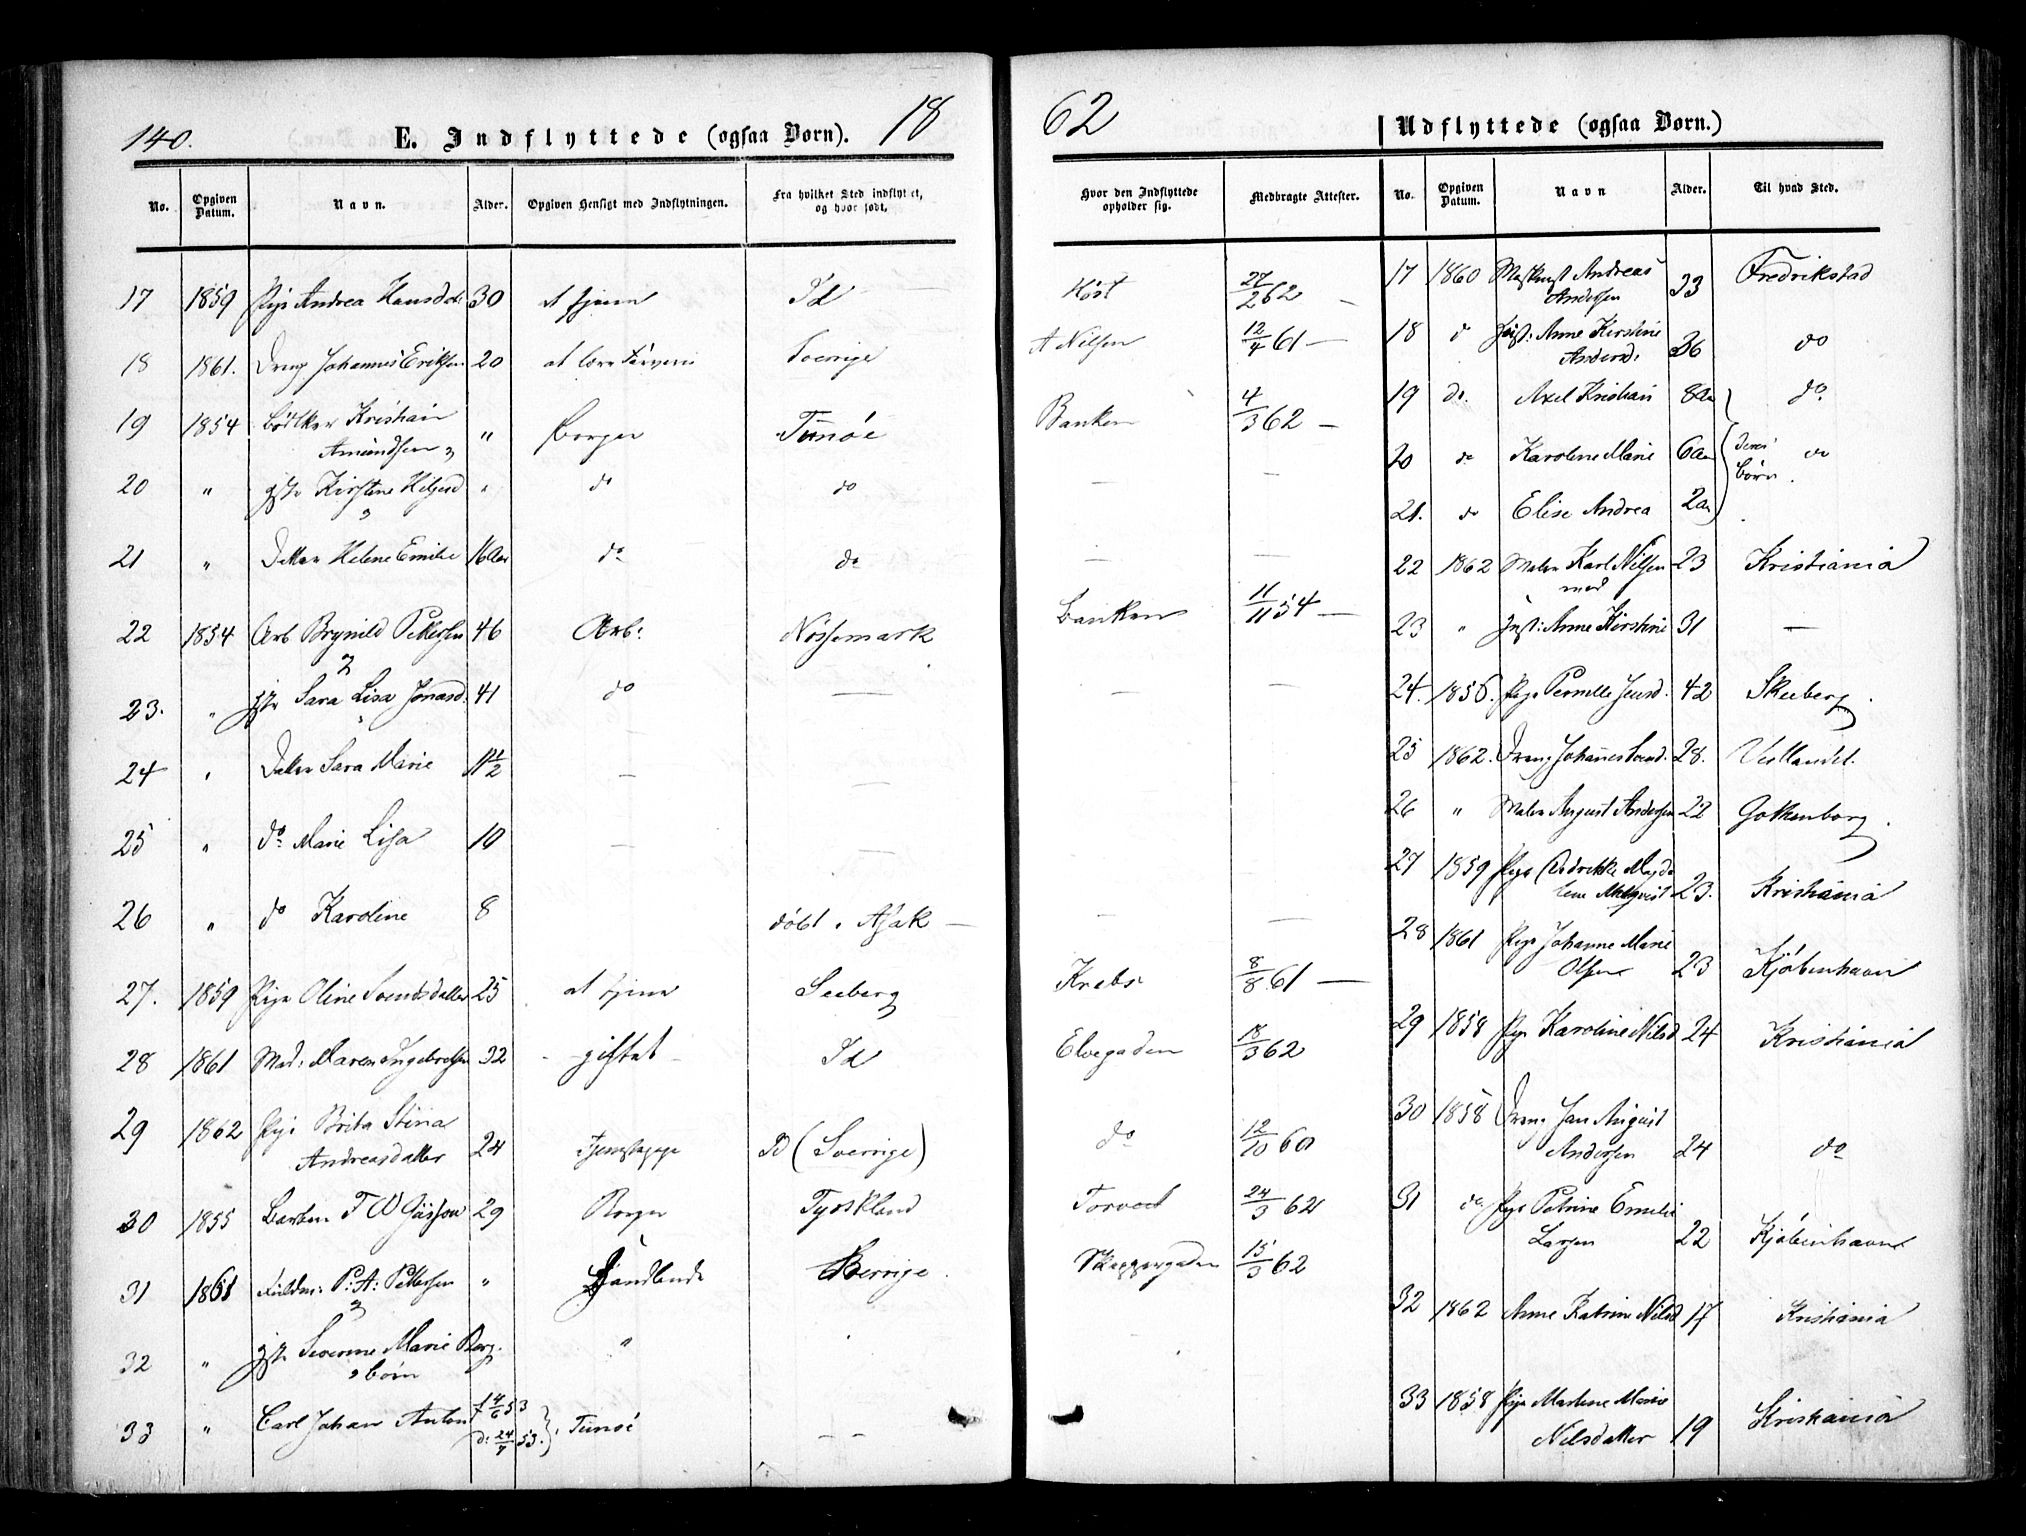 140.
E. Indflyttede (ogsaa Børn). 18
No. Opgiven Datum. Navn. Alder. Opgiven Hensigt med Indflytningen. Fra hvilket Sted indflyttet, og hvor født.
17 1859 Pige Andrea Hansdr 30 at tjene Id
18 1861. Dreng Johannes Eriksen 20 at lære Farveri Sverige
19 1854 Bødker Kristian Amundsen „ Borger Tunøe
20 „ gst Kirstine Helgesd „ do do
21 „ Datter Helene Emilie 16 Aar do do
22 1854 Arb Brynild Pettersen 46 Arb: Nössemark
23. „ gst Sara Lisa Jonasd. 41 do —
24 „ Datter Sara Marie 11½ — —
25 „ do Marie Lisa 10 — —
26 „ do Karoline 8 døbt i Asak —
27. 1859 Pige Oline Svendsdatter 25 at tjene Seeberg
28 1861 Mad: Maren Ingebretsen 32 - giftet - Id
29 1862 Pige Brita Stina
Andreasdatter 24 Tjenestepige (Sverrige)
30 1855 29 Borger Tyskland
31 1861 P: A: Pettersen „ Handlende Sverrige
32 „ gst Severine Marie Berg. „
børn
33 „ Carl Johan Anton f 4/6 53 Tunøe — —
62
Udflyttede (ogsaa Børn.)
Hvor den Indflyttede opholder sig. Medbragte Attester. No. Opgiven Datum. Navn Alder. Til hvad Sted.
Høst 27/2 62 —
A Nilsen 12/4 61 —
Banken 4/3 62 —
— —
— —
Banken 11/11 54 —
— —
— —
Krebs 8/8 61 —
Elvegaden 18/3 62
do 12/10 60
Torvet 24/3 62
Skeppergaden 15/3 62
17 1860 Andreas
Andersen 33 Fredrikstad
18 do Anne Kirstine
Andersd: 36 do
19 do. Axel Kristian 8 Aar do.
20 do Karoline Marie 6 Aar deres børn do
21. do Elise Andrea 2 Aar
22 1862 Maler Karl Nilsen 23 Kristiania
med
23 „ Anne Kirstine 31 —
24. 1856. Pige Pernille Jensd. 42 Skeeberg.
25 1862. Dreng Johannes Svend. 28. Vestlandet.
26 „ Maler August Andersen 22 Gothenborg.
27 1859 Pige Fredrikke Magda
lene 23. Kristiania
28 1861 Pige Johanne Marie
Olsen 23 Kjøbenhavn
29 1858 Pige Karoline Nilsd 24 Kristiania
30 1858 Dreng Jan August
Andersen 24 do
31 do Pige Petrine Emilie
Larsen 22 Kjøbenhavn
32 1862 Anne Katrine Nilsd 17 Kristiania
33 1858 Pige Martine Marie
Nilsdatter 19 Kristiania